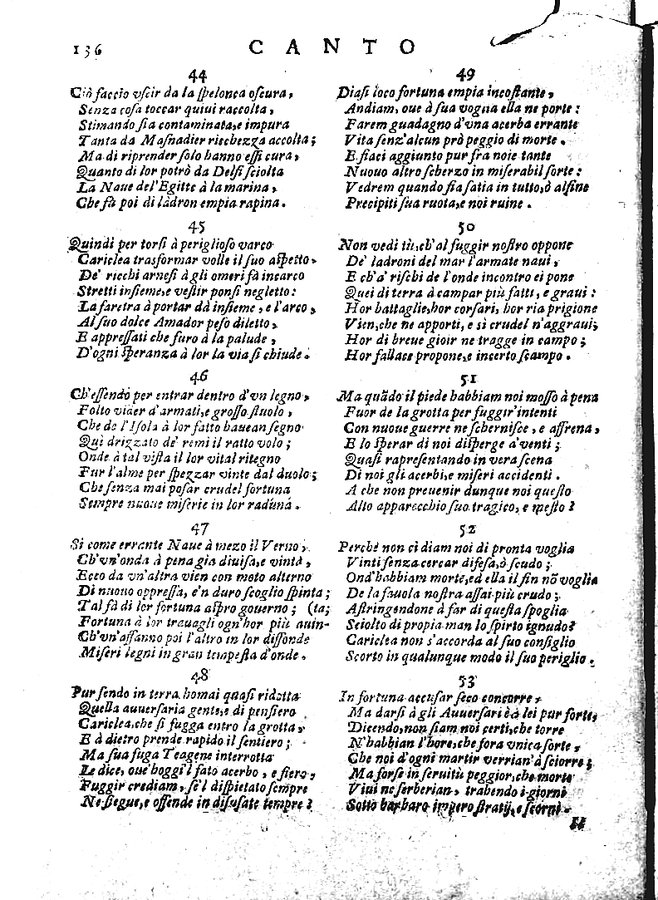 136
CANTO
44
Ciò faccio vscir da la spelonca oscura,
Senza cosa toccar quiui raccolta,
Stimando sia contaminata, e impura
Tanta da Masnadier ricchezza accolta;
Ma di riprender solo hanno essi cura,
Quanto di lor potrò da Delfi sciolta
La Naue del'Egitte à la marina,
Che fà poi di làdron empia rapina.
45
Quindi per torsi à periglioso varco
Cariclea trasformar volle il suo aspetto,
De' ricchi arnesi à gli omeri fà incarco
Stretti insieme, e vestir ponsi negletto:
La faretra à portar dà insieme, e l'arco,
Al suo dolce Amador peso diletto,
E appressati che furo à la palude,
D'ogni speranza à lor la via si chiude.
46
Ch'essendo per entrar dentro d'vn legno,
Folto vider d'armati, e grosso stuolo,
Che de l'Isola à lor fatto haueanſegno
Quì drizzato de' remi il ratto volo;
Onde à tal vista il lor vital ritegno
Fur l'alme per spezzar vinte dal duolo;
Che senza mai posar crudel fortuna
Sempre nuoue miserie in lor raduna.
47
Si come errante Naue à mezo il Verno,
Ch'vn'onda à pena gia diuisa, e vinta,
Ecco da vn'altra vien con moto alterno
Di nuouo oppressa, e'n duro scoglio spinta;
Tal fà di lor fortuna aspro gouerno; (ta;
Fortuna à lor trauagli ogn'hor più auin-
Ch'vn'affanno poi l'altro in lor diffonde
Miseri legni in gran tempesta d'onde.
48
Pur sendo in terra homai quasi ridotta
Quella auuersaria gente, e di pensiero
Cariclea, che si fugga entro la grotta,
E à dietro prende rapido il sentiero;
Ma sua fuga Teagene interrotta
Le dice, oue hoggi'l fato acerbo, e fiero,
Fuggir crediam, se'l dispietato sempre
Ne siegue, e offende in disusate tempre?
49
Diasi loco fortuna empia incostante,
Andiam, oue à sua voglia ella ne porte:
Farem guadagno d'vna acerba errante
Vita senz'alcun prò peggio di morte.
E siaci aggiunto pur fra noie tante
Nuouo altro scherzo in miserabil sorte:
Vedrem quando sia satia in tutto, ò alfine
Precipiti sua ruota, e noi ruine.
50
Non vedi tù, ch'al fuggir nostro oppone
De' ladroni del mar l'armate naui,
E ch'a' rischi de l'onde incontro ei pone
Quei di terra à campar più fatti, e graui:
Hor battaglie, hor corsari, hor ria prigione
Vien, che ne apporti, e sì crudel n'aggraui;
Hor di breue gioir ne tragge in campo;
Hor fallace propone, e incerto scampo.
51
Ma quãdo il piede habbiam noi mosso à pena
Fuor de la grotta per fuggir'intenti
Con nuoue guerre ne schernisce, e affrena,
E lo sperar di noi disperge a' venti;
Quasi rapresentando in vera scena
Di noi gli acerbi, e miseri accidenti.
A che non preuenir dunque noi questo
Alto apparecchio suo tragico, e mesto?
52
Perchè non ci diam noi di pronta voglia
Vinti senza cercar difesa, ò scudo;
Ond'habbiam morte, ed ella il fin nõ voglia
De la fauola nostra assai più crudo;
Astringendone à far di questa spoglia
Sciolto di propia man lo spirto ignudo?
Cariclea non s'accorda al suo consiglio
Scorto in qualunque modo il suo periglio.
53
In fortuna accusar seco concorre,
Ma darsi à gli Auuersari è à lei pur forte,
Dicendo, non siam noi certi, che torre
N'habbian l'hore, che fora vnica sorte,
Che noi d'ogni martir verrian' à sciorre;
Ma forse in seruitù peggior, che morte
Viui ne serberian, trahendo i giorni
Sotto barbaro impero stratij, e scorni.